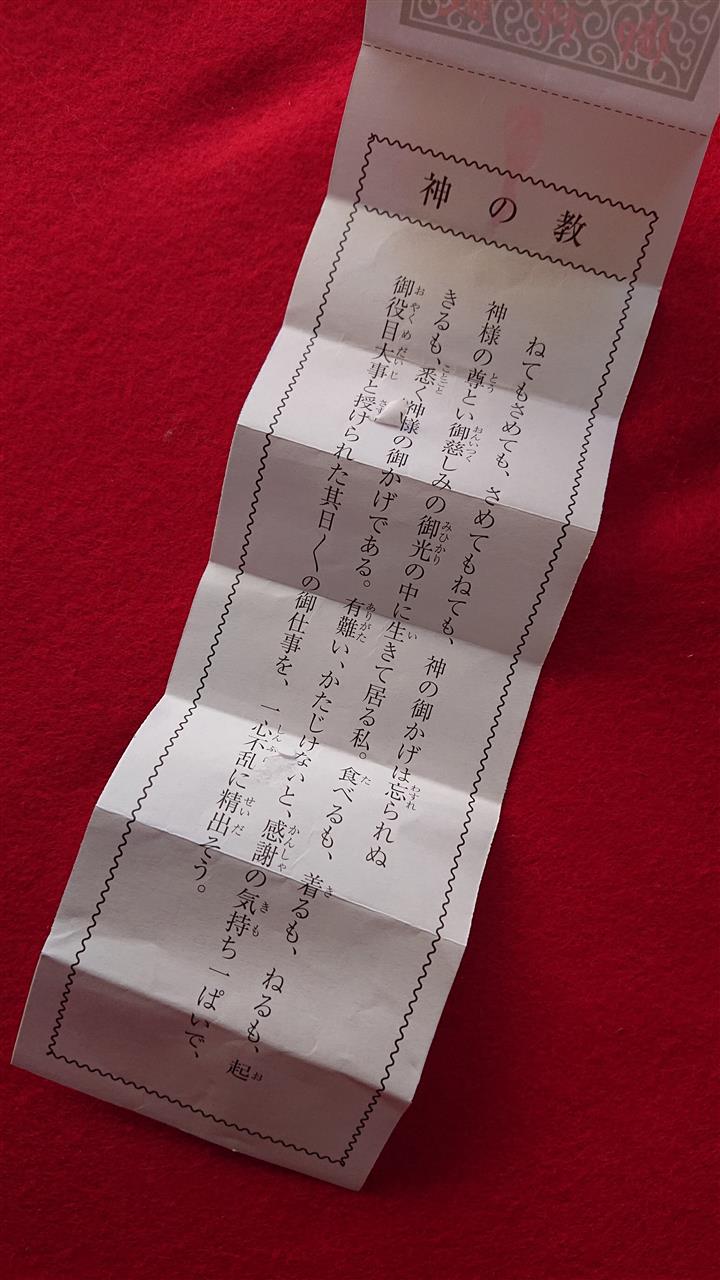 神の教
ねてもさめても、さめてもねても、神の御かげは忘られぬ
神様の尊とい御慈しみの御光の中に生きて居る私。食べるも、着るも、ねるも、起
きるも、悉く神様の御かげである。有難い、かたじけないと、感謝の気持ち一ぱいで、
御役目大事と授けられた其日〱の御仕事を、一心不乱に精出そう。